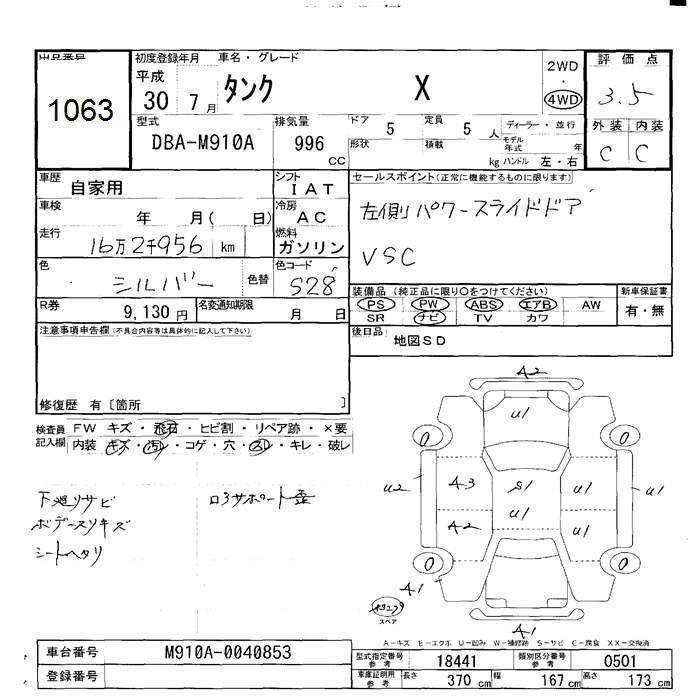 出品番号 初度登録年月 車名・グレード 評価点
1063 平成 30 7月 タンク X 2WD ・ 4WD 3.5
型式 DBA-M910A 排気量 996 CC ドア 5 定員 5 人 ディーラー・並行 外装 内装
形状 積載 kg モデル年式 年 ハンドル 左・右 C C
車歴 自家用 シフト IAT セールスポイント(正常に機能するものに限ります)
車検 年 月( 日) 冷房 AC 左側パワースライドドア
走行 16万2千956 km 燃料 ガソリン VSC
色 シルバー 色替 色コード S28
R券 9,130円 名変通知期限 月 日
装備品(純正品に限り○をつけてください) 新車保証書
PS PW ABS エアB AW 有・無
SR ナビ TV カワ
注意事項申告欄(不具合内容等は具体的に記入して下さい) 後日品 地図SD
修復歴 有〔箇所 〕
検査員記入欄 FW キズ・飛石・ヒビ割・リペア跡・×要
内装 キズ・汚れ・コゲ・穴・スレ・キレ・破レ
下廻りサビ ロアサポート歪
ボデースリキズ
シートヘタリ
A2
U1
0 0
U2 A3 S1 U1 U1
A2 U1 U1
0 0
A1
スペア
A1
A-キズ E-エクボ U-凹み W-補修跡 S-サビ C-腐食 XX-交換済
車台番号 M910A-0040853 型式指定番号 参考 18441 類別区分番号 参考 0501
登録番号 車庫証明用 参考 長さ 370 cm 幅 167 cm 高さ 173 cm